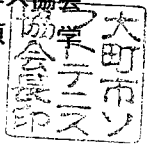 協会
学
大町市ソ
フトテニス
協会長印